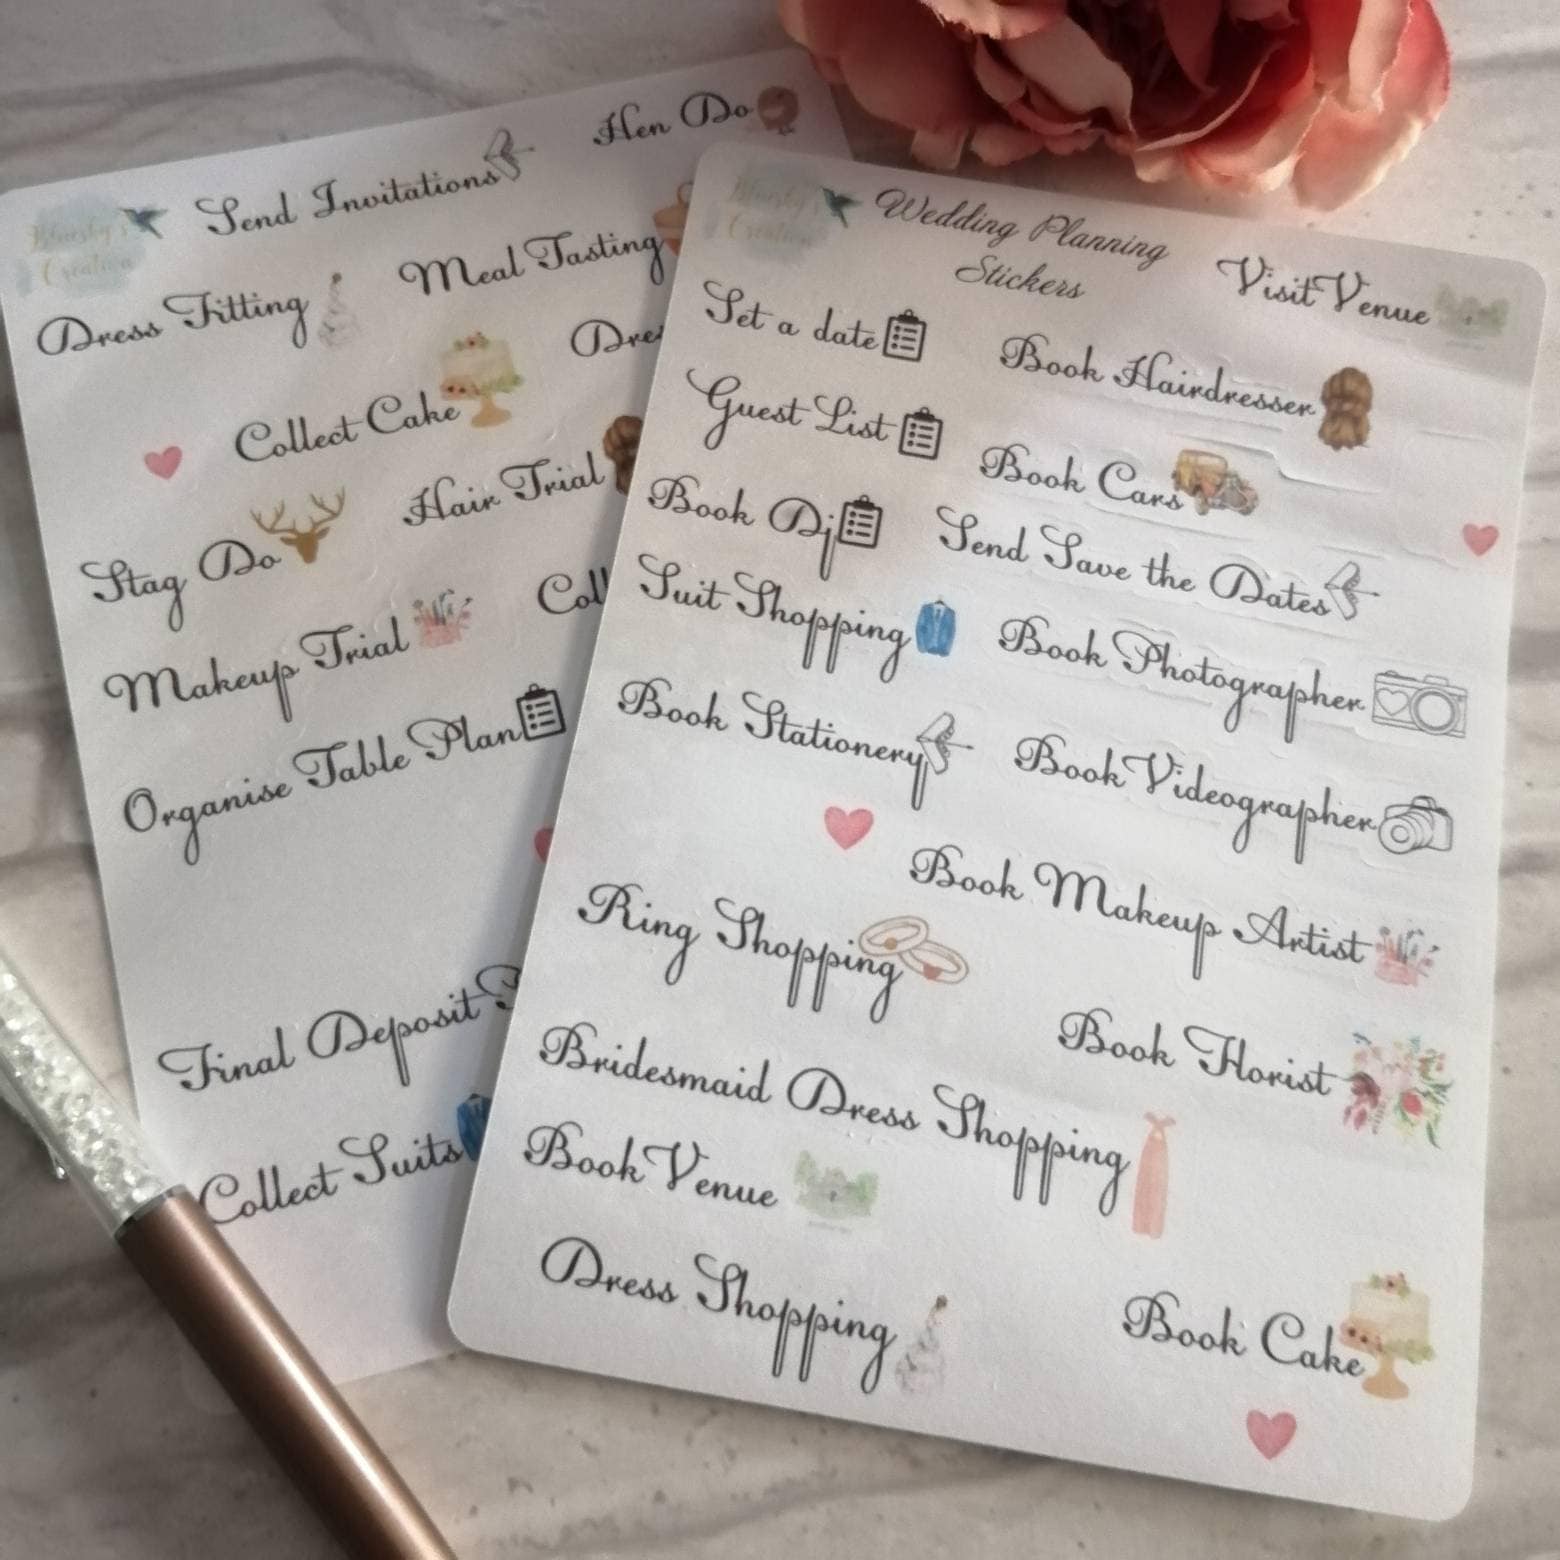 Send Invitations
Hen Do
Dress Fitting
Meal Tasting
Collect Cake
Stag Do
Hair Trial
Makeup Trial
Organise Table Plan
Final Deposit
Collect Suits
Wedding Planning
Stickers
Visit Venue
Set a date
Book Hairdresser
Guest List
Book Cars
Book Dj
Send Save the Dates
Suit Shopping
Book Photographer
Book Stationery
Book Videographer
Book Makeup Artist
Ring Shopping
Book Florist
Bridesmaid Dress Shopping
Book Venue
Dress Shopping
Book Cake